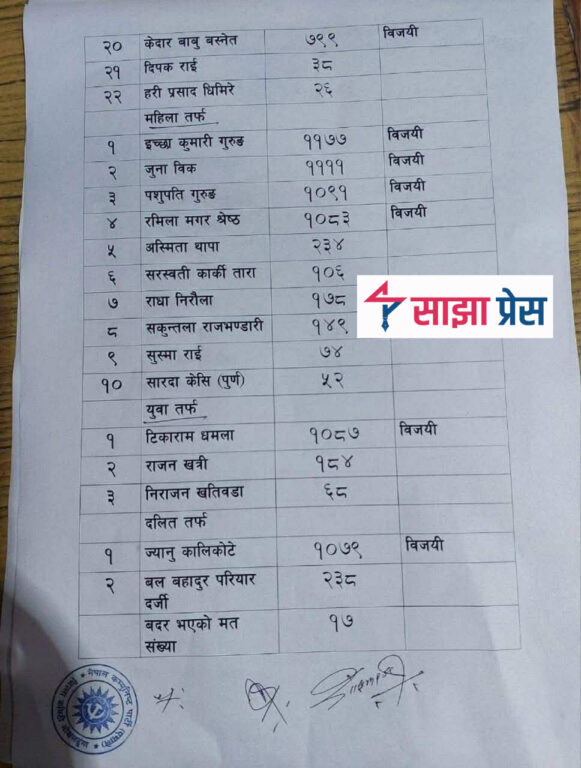 २० केदार बाबु बस्नेत ७९९ विजयी
२१ दिपक राई ३८
२२ हरी प्रसाद घिमिरे २६
महिला तर्फ
१ इच्छा कुमारी गुरुङ ११७७ विजयी
२ जुना विक ११११ विजयी
३ पशुपति गुरुङ १०९१ विजयी
४ रमिला मगर श्रेष्ठ १०८३ विजयी
५ अस्मिता थापा २३४
६ सरस्वती कार्की तारा १०६
७ राधा निरौला १७८
साझा प्रेस
८ सकुन्तला राजभण्डारी १४९
९ सुस्मा राई ७४
१० सारदा केसि (पुर्ण) ५२
युवा तर्फ
१ टिकाराम धमला १०८७ विजयी
२ राजन खत्री १८४
३ निराजन खतिवडा ६८
दलित तर्फ
१ ज्यानु कालिकोटे १०७९ विजयी
२ बल बहादुर परियार २३८
दर्जी
बदर भएको मत १७
संख्या
नेपाल कम्युनिष्ट पार्टी (एमाले)